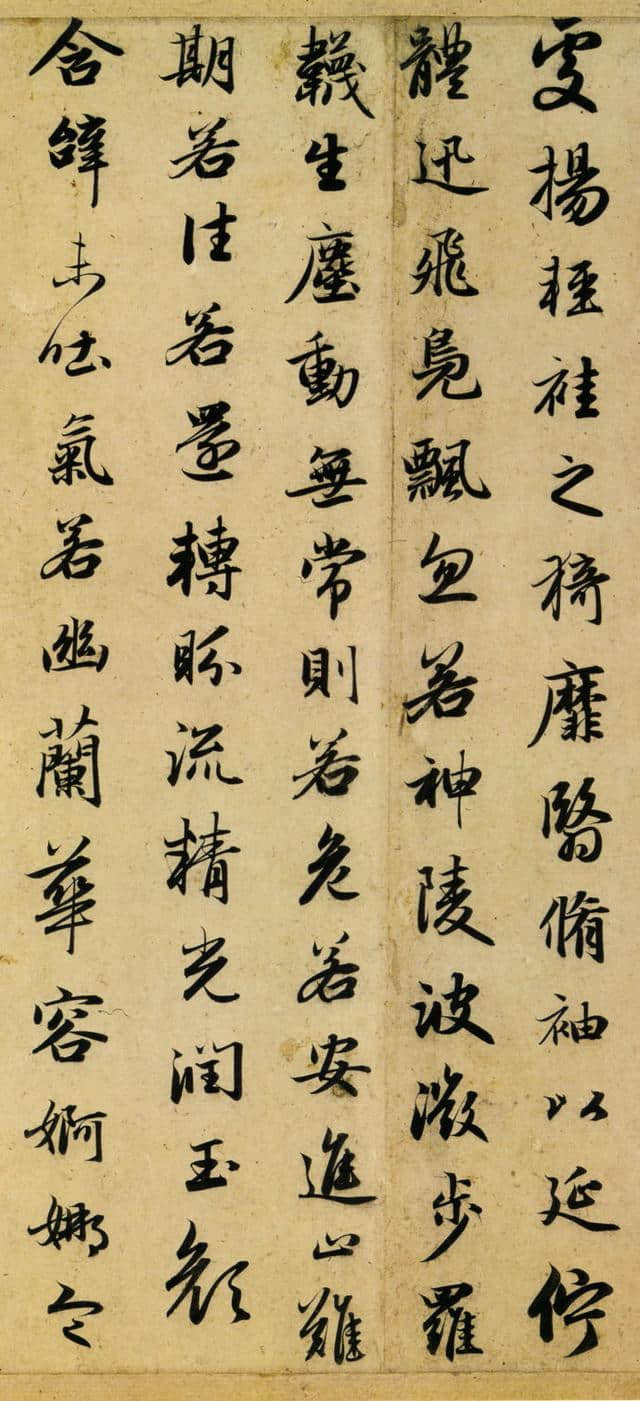 處揚輕袿之猗靡翳脩袖以延佇
體迅飛鳧飄忽若神陵波微步羅
韈生塵動無常則若危若安進止難
期若往若還轉眄流精光潤玉顏
含辭未吐氣若幽蘭華容婀娜令